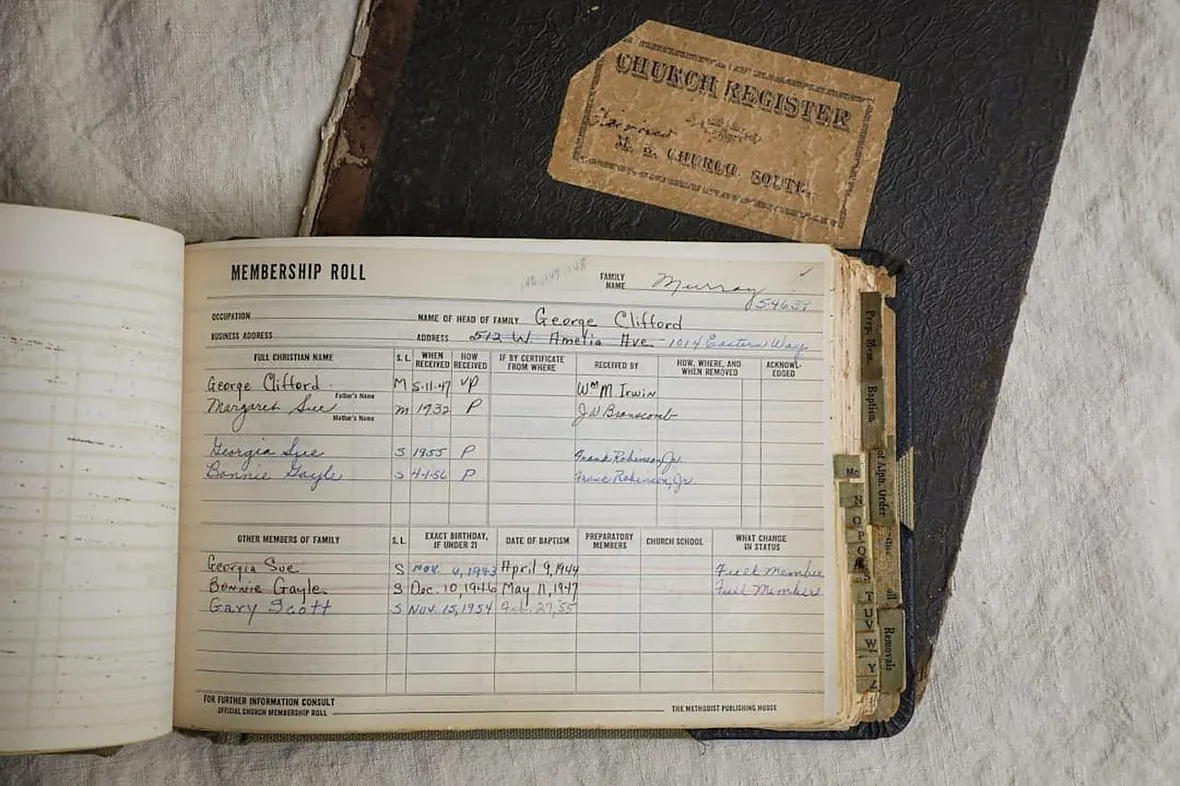 CHURCH REGISTER
M. E. CHURCH, SOUTH.
MEMBERSHIP ROLL
FAMILY NAME Murray
OCCUPATION NAME OF HEAD OF FAMILY George Clifford
BUSINESS ADDRESS ADDRESS 512 W. Amelia Ave. - 1014 Eastern Way
FULL CHRISTIAN NAME S. L. WHEN RECEIVED HOW RECEIVED IF BY CERTIFICATE FROM WHERE RECEIVED BY HOW, WHERE, AND WHEN REMOVED ACKNOWLEDGED
George Clifford M 5-11-47 VP Wm M Irwin
Father's Name
Margaret Sue m 1932 P J W Branscomb
Mother's Name
Georgia Sue S 1955 P Frank Robinson, Jr.
Bonnie Gayle S 4-1-56 P Frank Robinson, Jr.
OTHER MEMBERS OF FAMILY S. L. EXACT BIRTHDAY, IF UNDER 21 DATE OF BAPTISM PREPARATORY MEMBERS CHURCH SCHOOL WHAT CHANGE IN STATUS
Georgia Sue S Nov. 6, 1943 April 9, 1944 Full Member
Bonnie Gayle S Dec. 10, 1946 May 11, 1947 Full Member
Gary Scott S Nov. 15, 1954 Feb. 27, 55
FOR FURTHER INFORMATION CONSULT
OFFICIAL CHURCH MEMBERSHIP ROLL THE METHODIST PUBLISHING HOUSE
Prep. Mem.
Baptism
of Alph. Order
Removals
Mc
N
O
P
Q
R
S
T
U
V
W
Y
Z